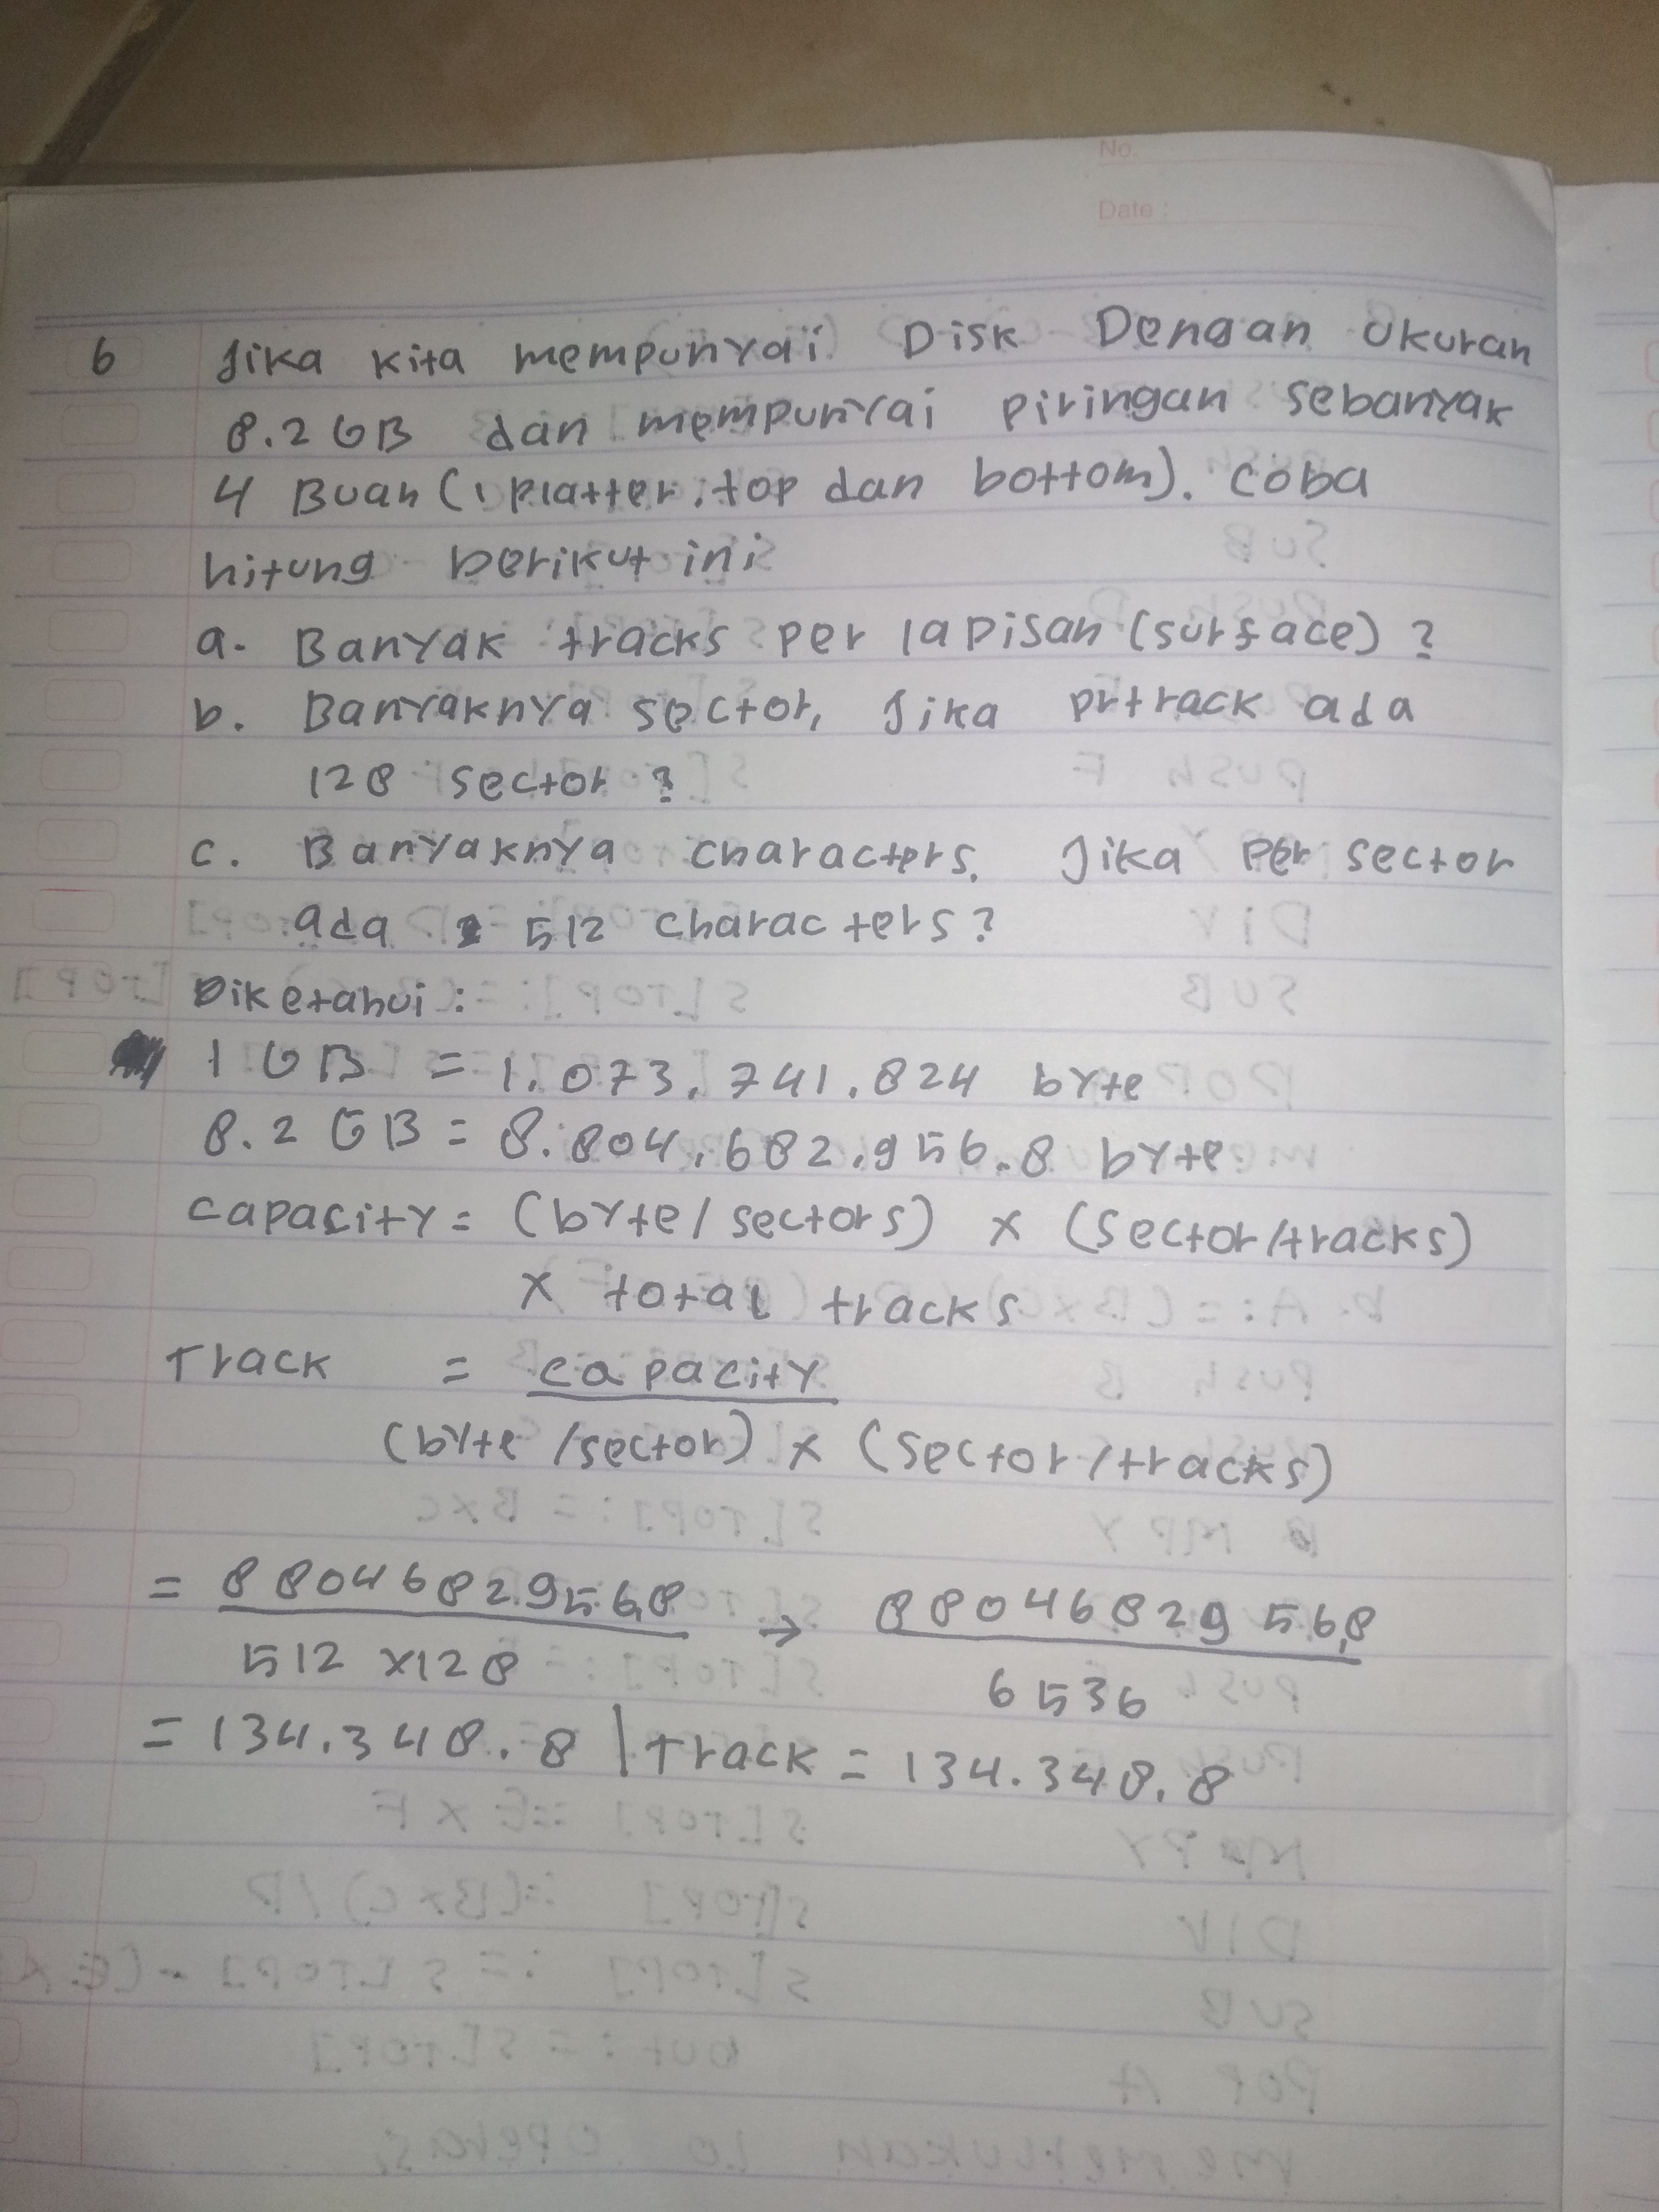 No.
Date :
6 Jika kita mempunyai Disk Dengan Ukuran
8.2 GB dan mempunyai piringan sebanyak
4 Buah (1 platter : top dan bottom). Coba
hitung berikut ini
a. Banyak tracks per lapisan (surface) ?
b. Banyaknya sector, Jika prtrack ada
128 sector ?
c. Banyaknya characters. Jika per sector
ada 512 characters ?
Diketahui :
1 GB = 1.073.741.824 byte
8.2 GB = 8.804.682.956.8 byte
capacity = (byte / sectors) x (sector/tracks)
x total tracks
Track = capacity
(byte /sector) x (sector/tracks)
= 8804682956,8 → 8804682956,8
512 x128 6536
= 134.348.8 | Track = 134.348.8